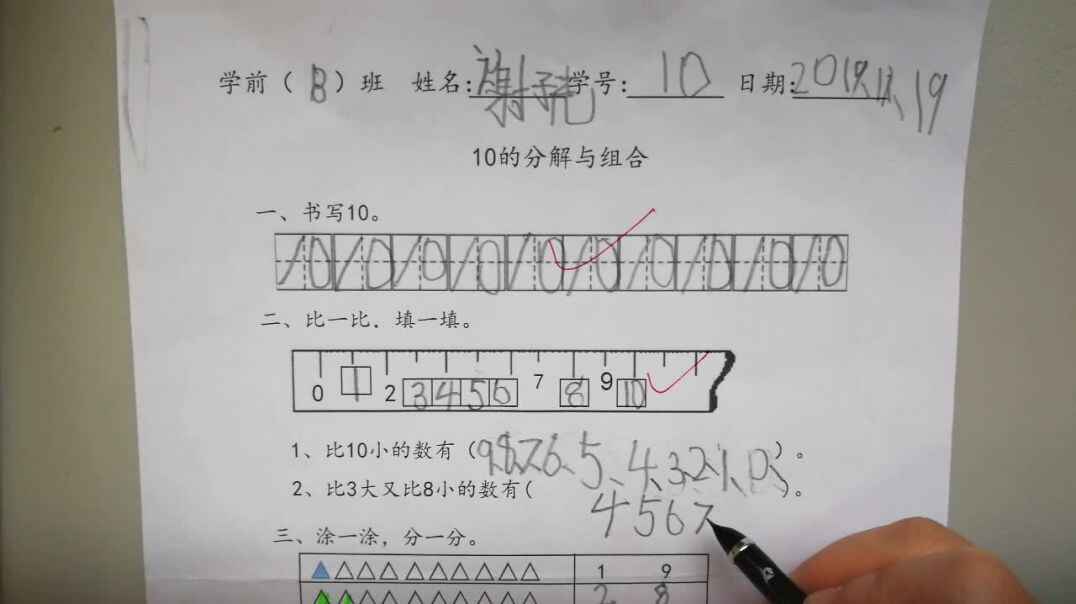 学前（8）班 姓名：谢子 学号：10 日期：2019.11、19
10的分解与组合
一、书写10。
10 10 10 10 10 10 10 10 10 10
二、比一比．填一填。
0 1 2 3 4 5 6 7 8 9 10
1、比10小的数有（9、8、7、6、5、4、3、2、1、0、）。
2、比3大又比8小的数有（4 5 6 7）。
三、涂一涂，分一分。
1 9
2 8